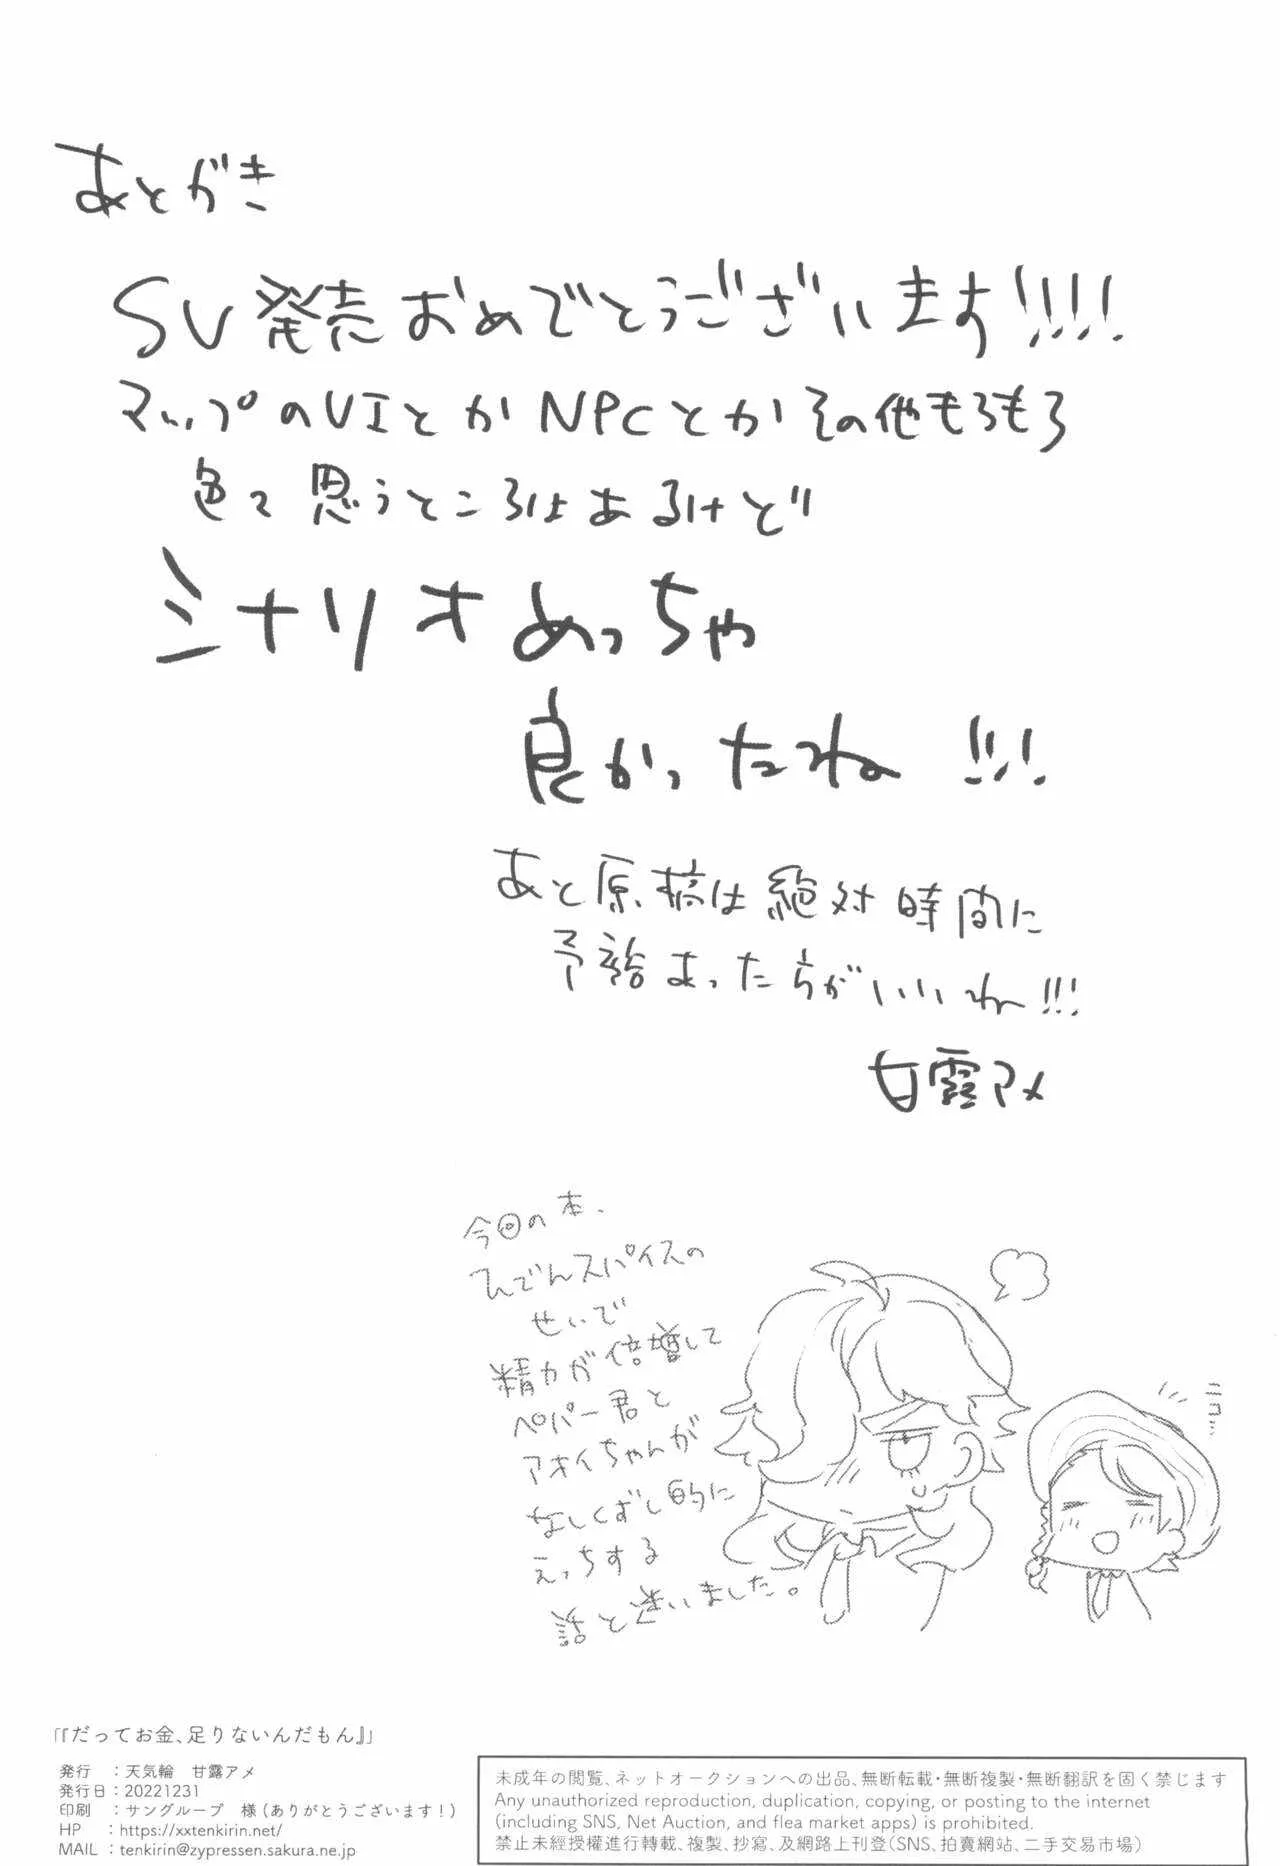 あとがき
SV発売おめでとうございます!!!!
マップのUIとかNPCとかその他もろもろ
色々思うところはあるけど
シナリオめっちゃ
良かったね!!!
あと原稿は絶対時間に
予裕あった方がいいね!!!
甘露アメ
今回の本、
ひでんスパイスの
せいで
精力が倍増して
ペパー君と
アオイちゃんが
なしくずし的に
えっちする
話と迷いました。
ニコ
「『だってお金、足りないんだもん』」
発行　：天気輪　甘露アメ
発行日：20221231
印刷　：サングループ　様（ありがとうございます！）
HP　：https://xxtenkirin.net/
MAIL　：tenkirin@zypressen.sakura.ne.jp
未成年の閲覧、ネットオークションへの出品、無断転載・無断複製・無断翻訳を固く禁じます
Any unauthorized reproduction, duplication, copying, or posting to the internet
(including SNS, Net Auction, and flea market apps) is prohibited.
禁止未經授權進行轉載、複製、抄寫、及網路上刊登（SNS、拍賣網站、二手交易市場）